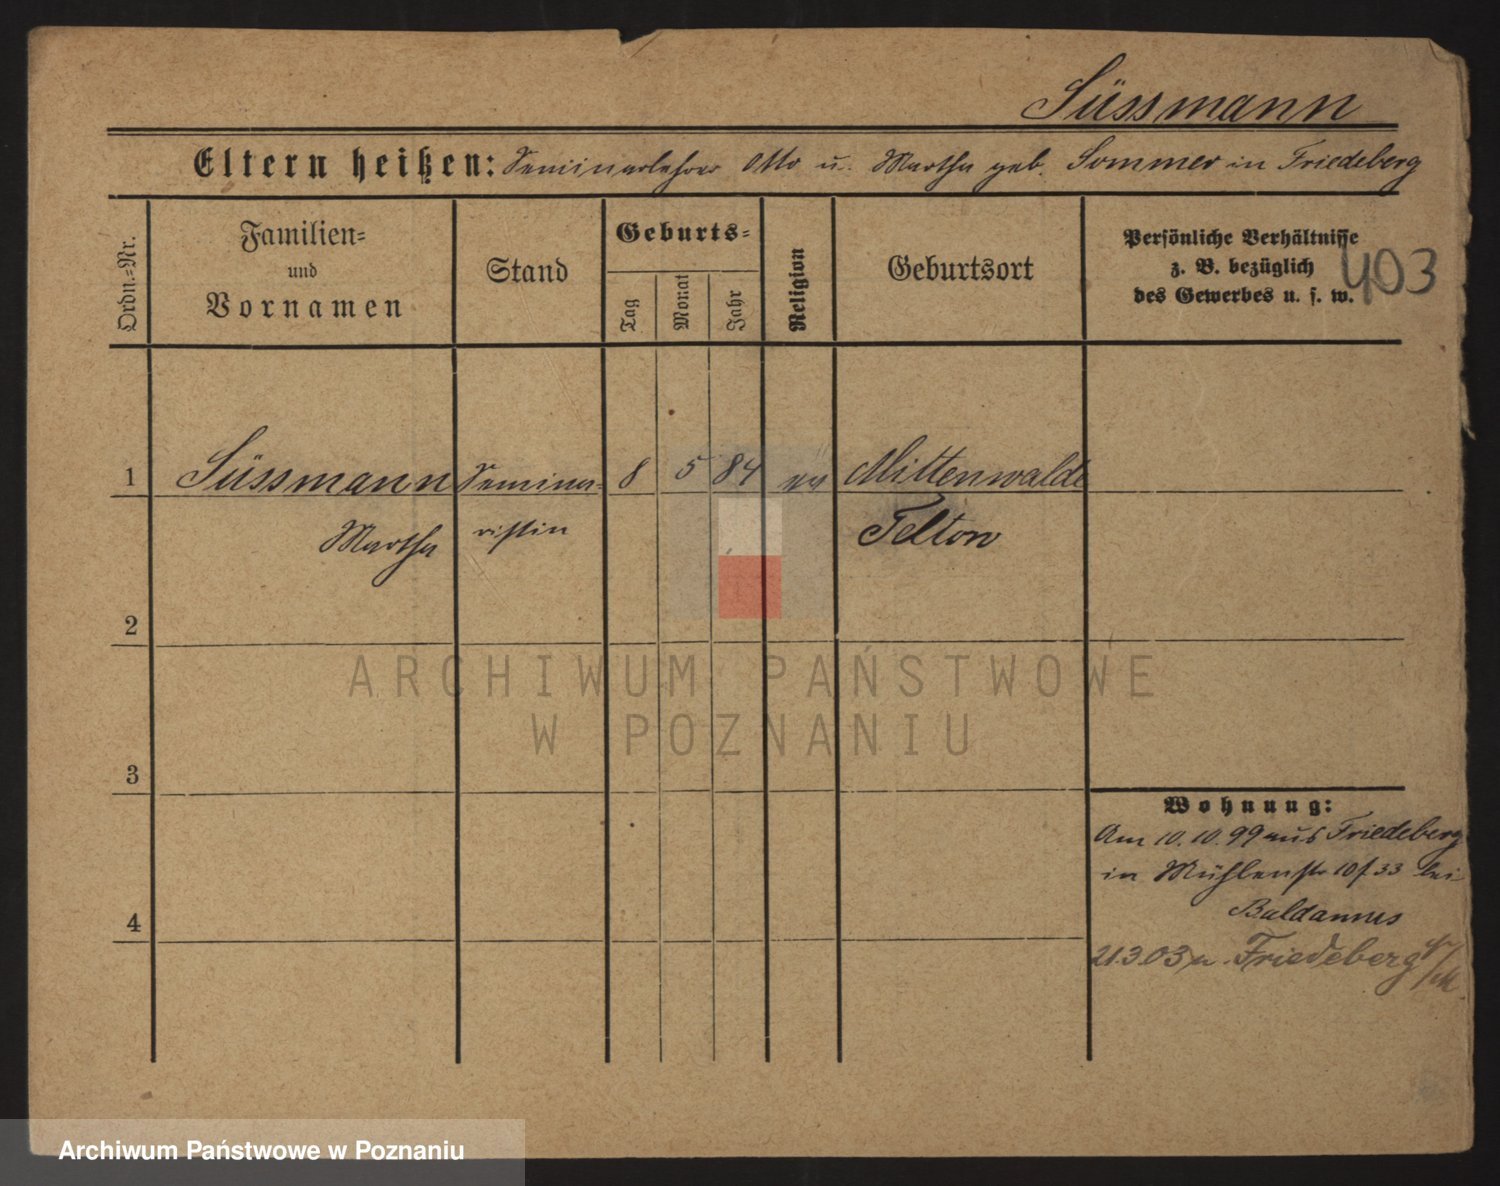 Süssmann
Eltern heißen: Seminarlehrer Otto u. Martha geb. Sommer in Friedeberg
Ordn.-Nr.
Familien-
und
Vornamen
Stand
Geburts-
Tag
Monat
Jahr
Religion
Geburtsort
Persönliche Verhältnisse
z. B. bezüglich
des Gewerbes u. s. w.
403
1 Süssmann Semina- 8 5 84 ev Mittenwalde
Martha ristin Teltow
2
3
4
Wohnung:
Am 10.10.99 aus Friedeberg
in Mühlenstr 10 f. 33 bei
21.3.03 n. Friedeberg
ARCHIWUM PAŃSTWOWE
W POZNANIU
Archiwum Państwowe w Poznaniu